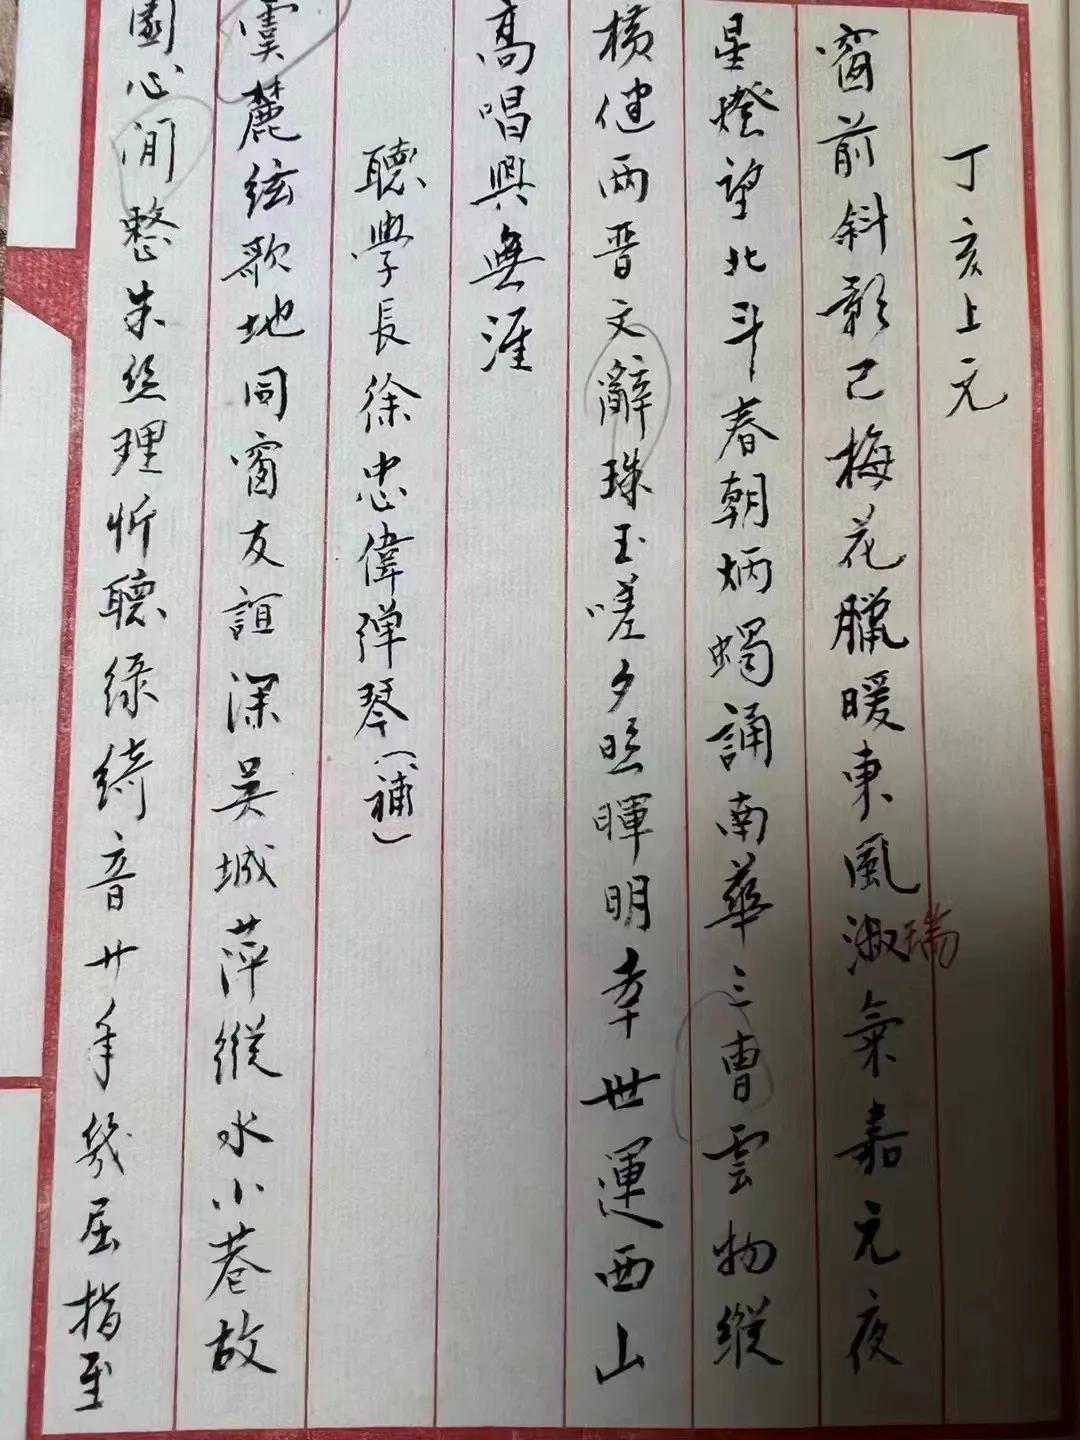 丁亥上元
窗前斜影已梅花臘暖東風淑氣嘉元夜
瑞
星燈望北斗春朝炳蠋誦南華三曹雲物縱
横健两晋文辭珠玉嗟夕照暉明幸世運西山
高唱興無涯
聽學長徐忠偉弹琴（補）
虞麓絃歌地同窗友誼深吴城萍縱水小巷故
園心閒整朱丝理忻聽绿綺音廿年幾屈指至